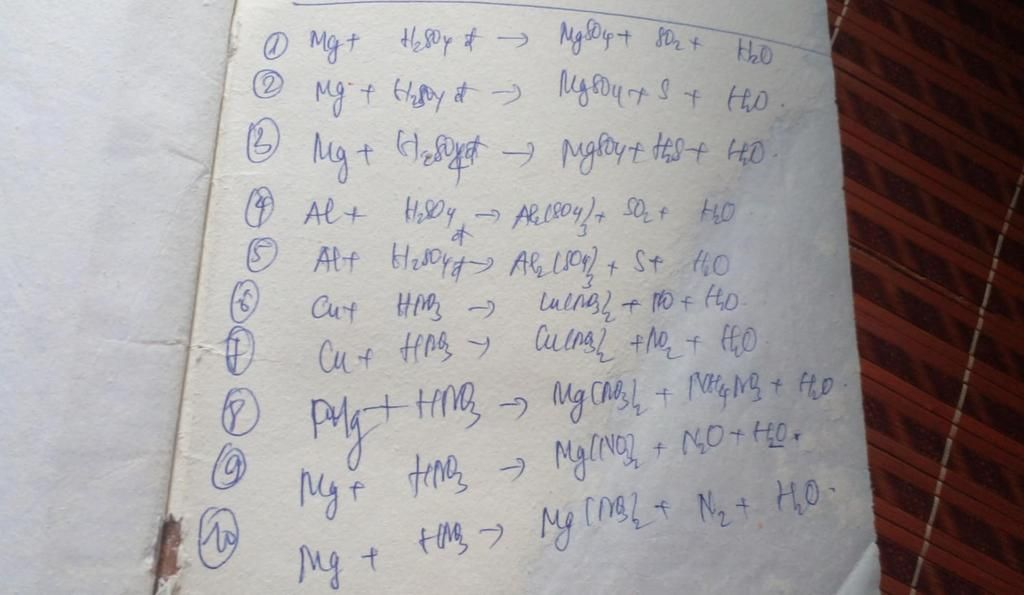 ① Mg + H₂SO₄ đ → MgSO₄ + SO₂ + H₂O
② Mg + H₂SO₄ đ → MgSO₄ + S + H₂O.
③ Mg + H₂SO₄ đ → MgSO₄ + H₂S + H₂O.
④ Al + H₂SO₄ đ → Al₂(SO₄)₃ + SO₂ + H₂O
⑤ Al + H₂SO₄ đ → Al₂(SO₄)₃ + S + H₂O
⑥ Cu + HNO₃ → Cu(NO₃)₂ + NO + H₂O.
⑦ Cu + HNO₃ → Cu(NO₃)₂ + NO₂ + H₂O
⑧ Mg + HNO₃ → Mg(NO₃)₂ + NH₄NO₃ + H₂O.
⑨ Mg + HNO₃ → Mg(NO₃)₂ + N₂O + H₂O.
⑩ Mg + HNO₃ → Mg(NO₃)₂ + N₂ + H₂O.